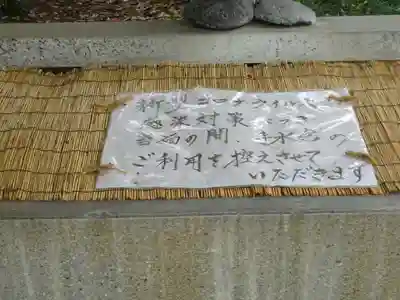 新型コロナウイルス
感染対策につき
当面の間、手水舎の
ご利用を控えさせて
いただきます